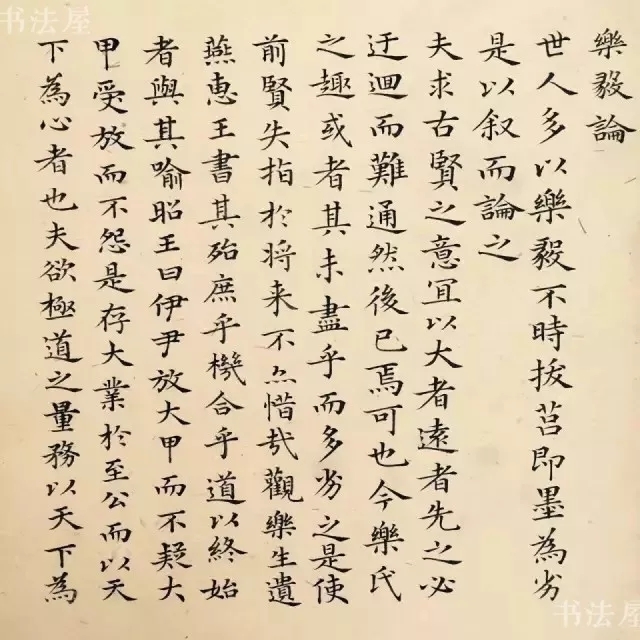 樂毅論
世人多以樂毅不時拔莒即墨為劣
是以叙而論之
夫求古賢之意宜以大者遠者先之必
迂迴而難通然後已焉可也今樂氏
之趣或者其未盡乎而多劣之是使
前賢失指於将来不亦惜哉觀樂生遺
燕惠王書其殆庶乎機合乎道以終始
者與其喻昭王曰伊尹放大甲而不疑大
甲受放而不怨是存大業於至公而以天
下為心者也夫欲極道之量務以天下為
书法屋
书法屋